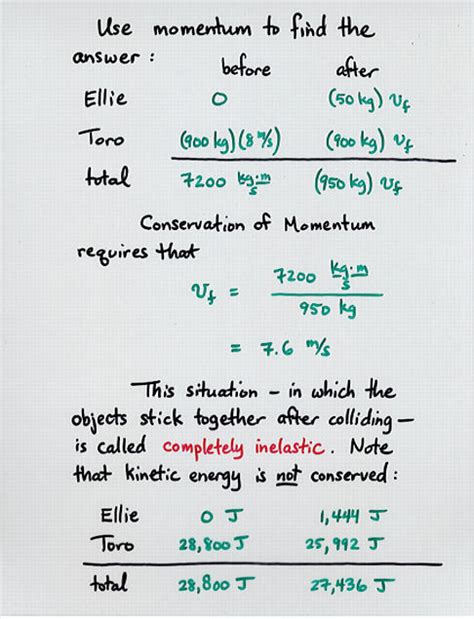 Use momentum to find the
answer : before after
Ellie 0 (50 kg) v_f
Toro (900 kg)(8 m/s) (900 kg) v_f
total 7200 kg·m/s (950 kg) v_f
Conservation of Momentum
requires that
v_f = 7200 kg·m/s / 950 kg
= 7.6 m/s
This situation – in which the
objects stick together after colliding –
is called completely inelastic. Note
that kinetic energy is not conserved :
Ellie 0 J 1,444 J
Toro 28,800 J 25,992 J
total 28,800 J 27,436 J